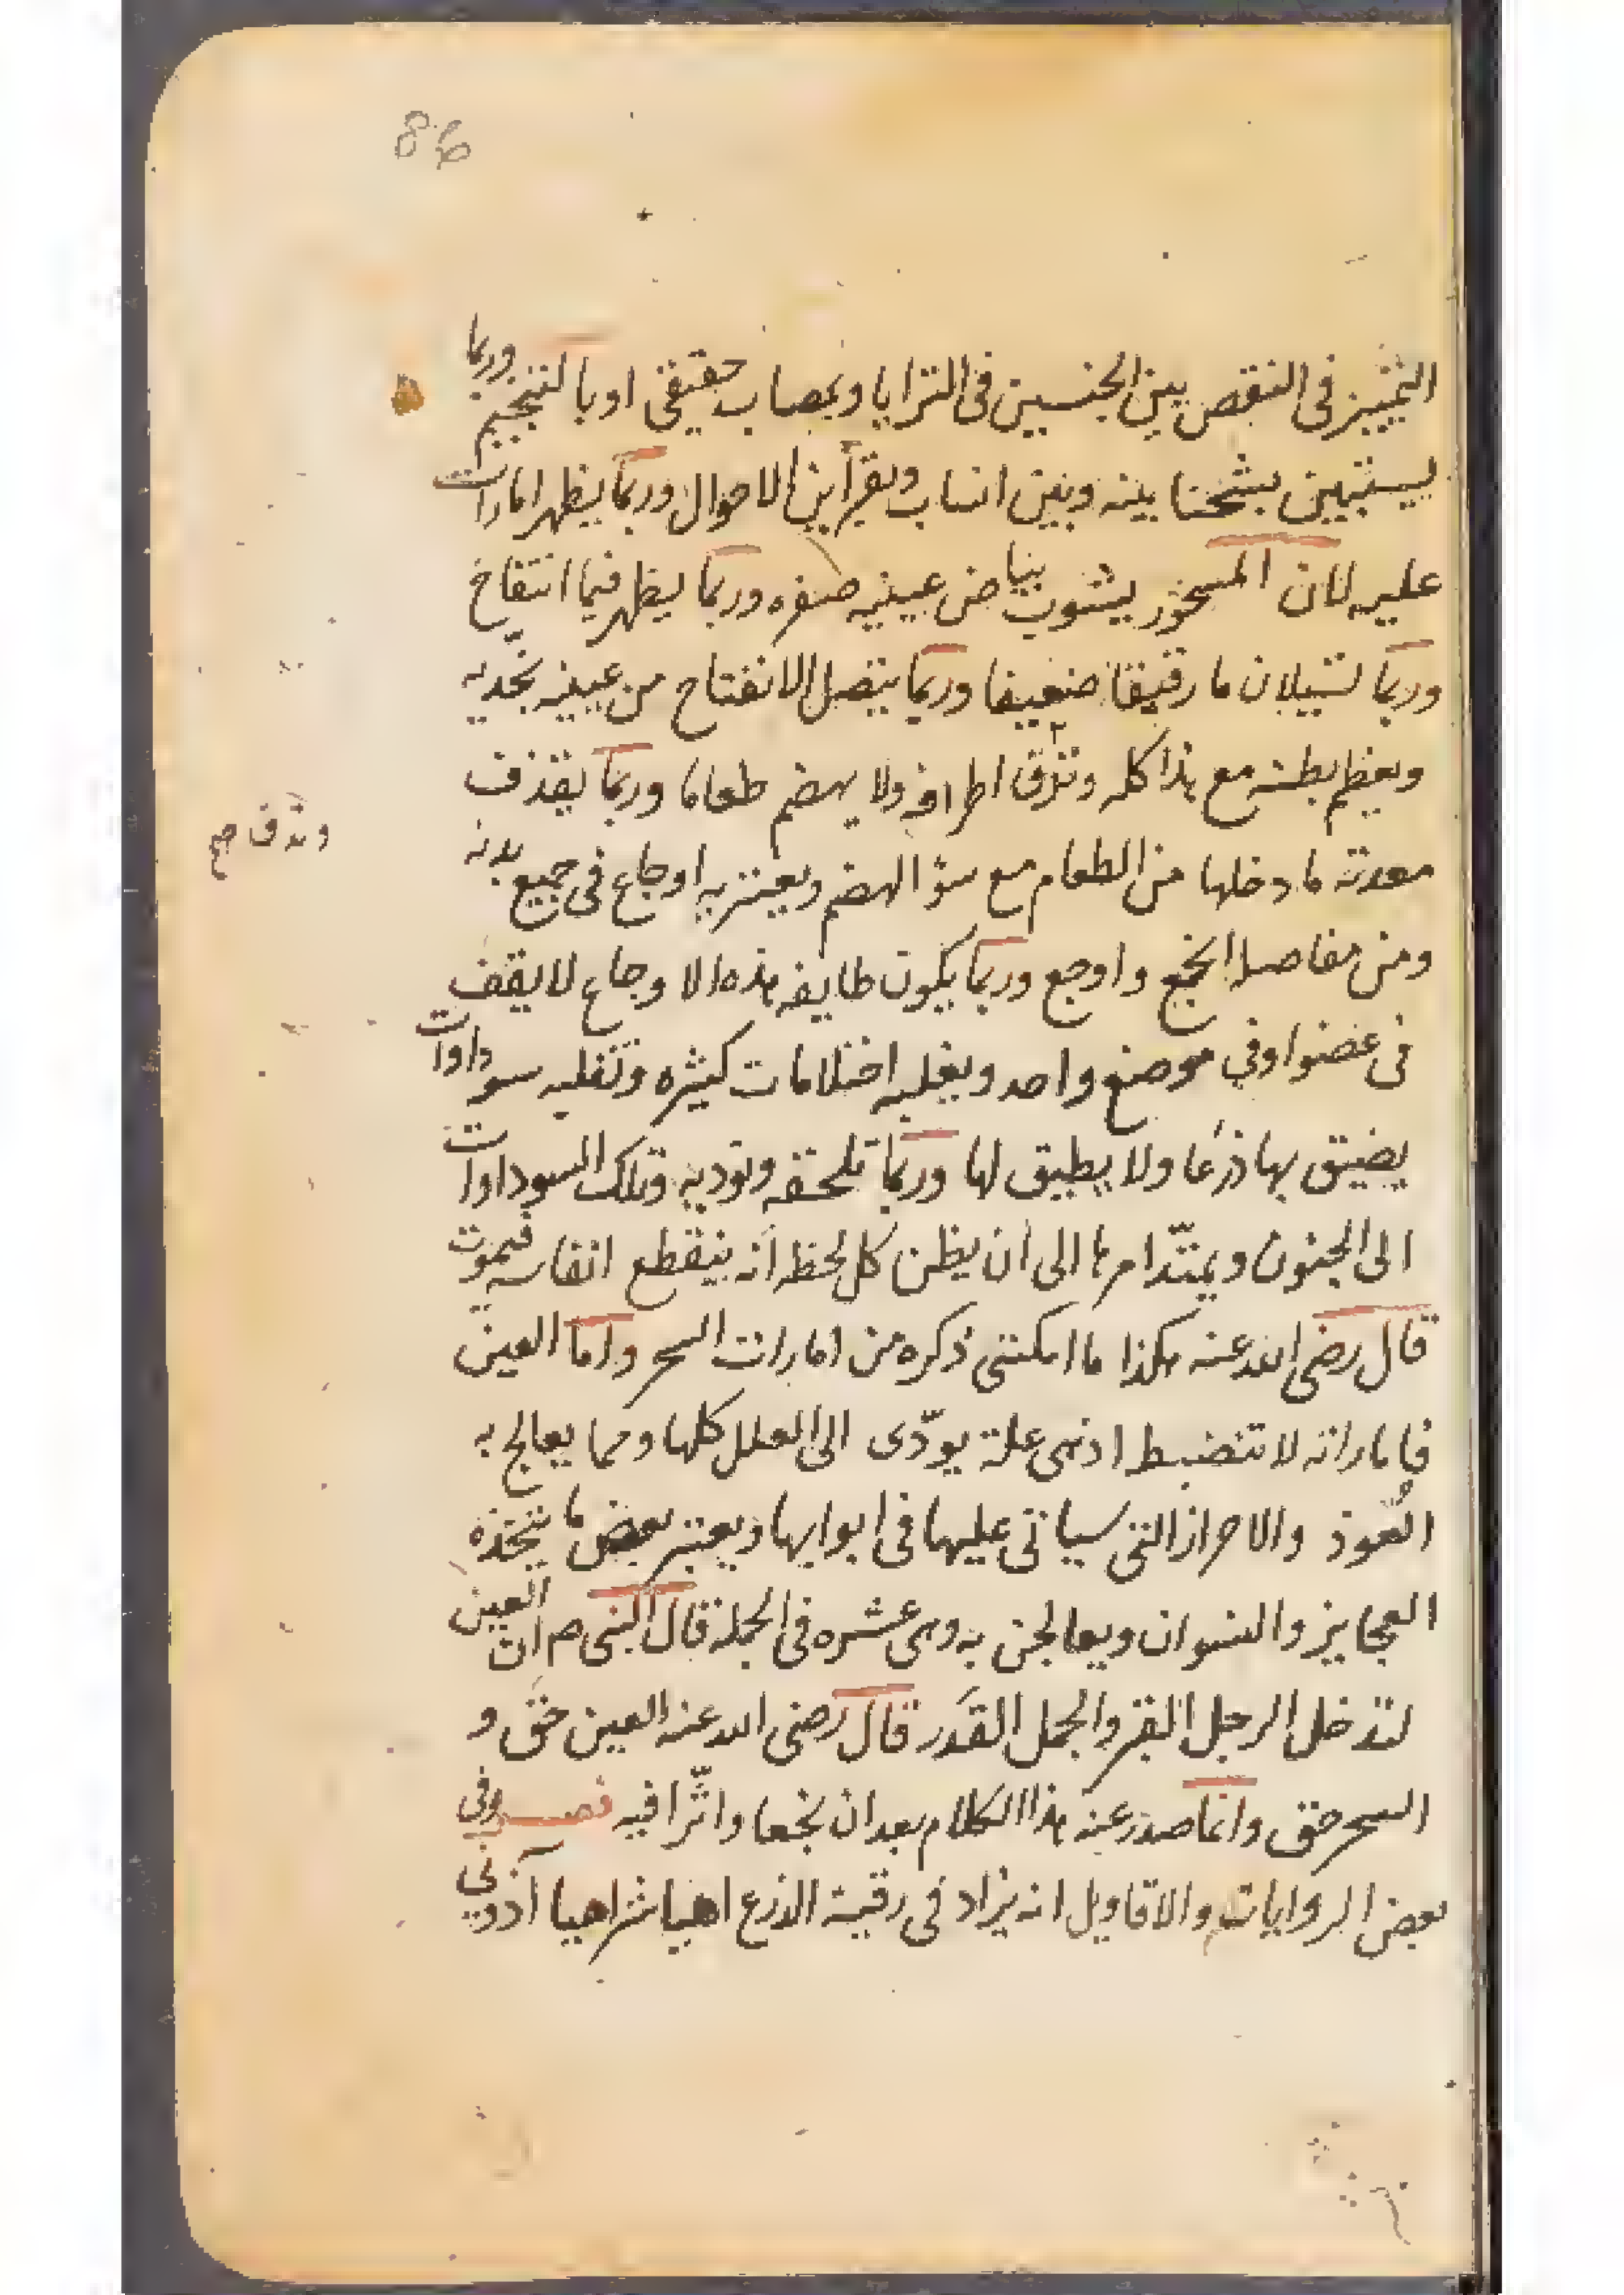 86
التميز فى النقص بين الجنسين فى التزايا وبمصاب حقيقى او بالتنجيم وربما
يستبين بشحنا بينه وبين انساب وبقرأين الاحوال وربما يظهر امارات
عليه لان المسحور يشوب بياض عينيه صفره وربما يظهر فيما انتفاخ
وربما تسيلان ما رقيقا ضعيفا وربما يتصل الانفتاح من عينيه بخديه
ويعظم بطنه مع هذا كله وتزق اطرافه ولا يهضم طعاما وربما يقذف
وتدق صح
معدته ما دخلها من الطعام مع سؤ الهضم ويعتريه اوجاع فى جميع بدنه
ومن مفاصله انجع واوجع وربما يكون طايفه هذه الاوجاع لا يقف
فى عضو او فى موضع واحد ويغلبه احتلامات كثيره وتغلبه سوداوات
يضيق بها ذرعا ولا يطيق لها وربما تلحقه وتوديه وتلك السوداوات
الى الجنون ويمتدّ امرها الى ان يظن كل لحظه انه ينقطع انفاسه فيموت
قال رضى الله عنه هكذا ما امكننى ذكره من امارات السحر واما العين
فاماراته لا تنضبط ادنى علة يودّى الى العلل كلها ومما يعالج به
العوذ والاحراز التى سياتى عليها فى ابوابها ويعتبر بعض ما يتخذه
العجايز والنسوان ويعالجن به وهى عشره فى الجملة قال النبى ص ان العين
لتدخل الرجل القبر والجمل القدر قال رضى الله عنه العين حق و
السحر حق وانما صدر عنه هذا الكلام بعد ان نجعا واثّرا فيه فصـــــل وفى
بعض الروايات والاقاويل انه يزاد فى رقية الذرع اهيا شراهيا آذونى